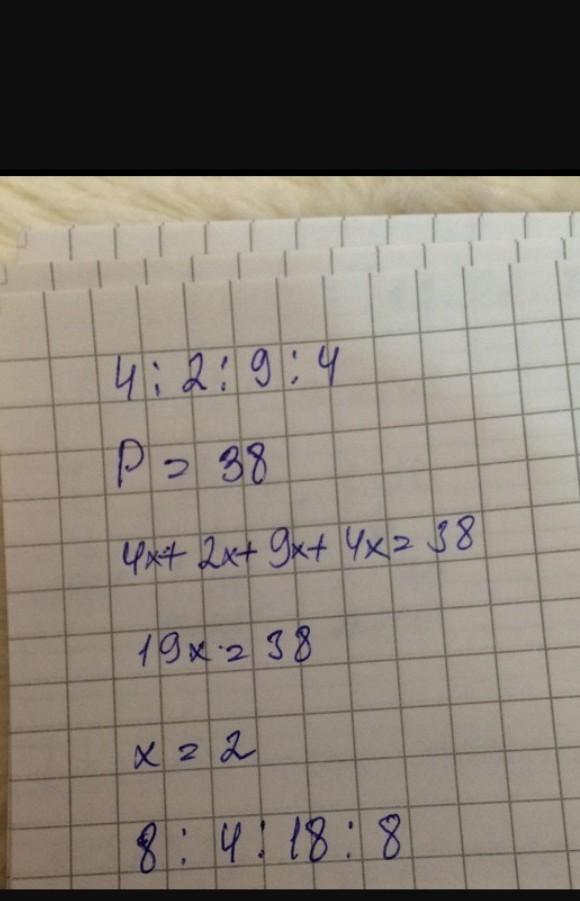 4 : 2 : 9 : 4
P = 38
4x + 2x + 9x + 4x = 38
19x = 38
x = 2
8 : 4 : 18 : 8